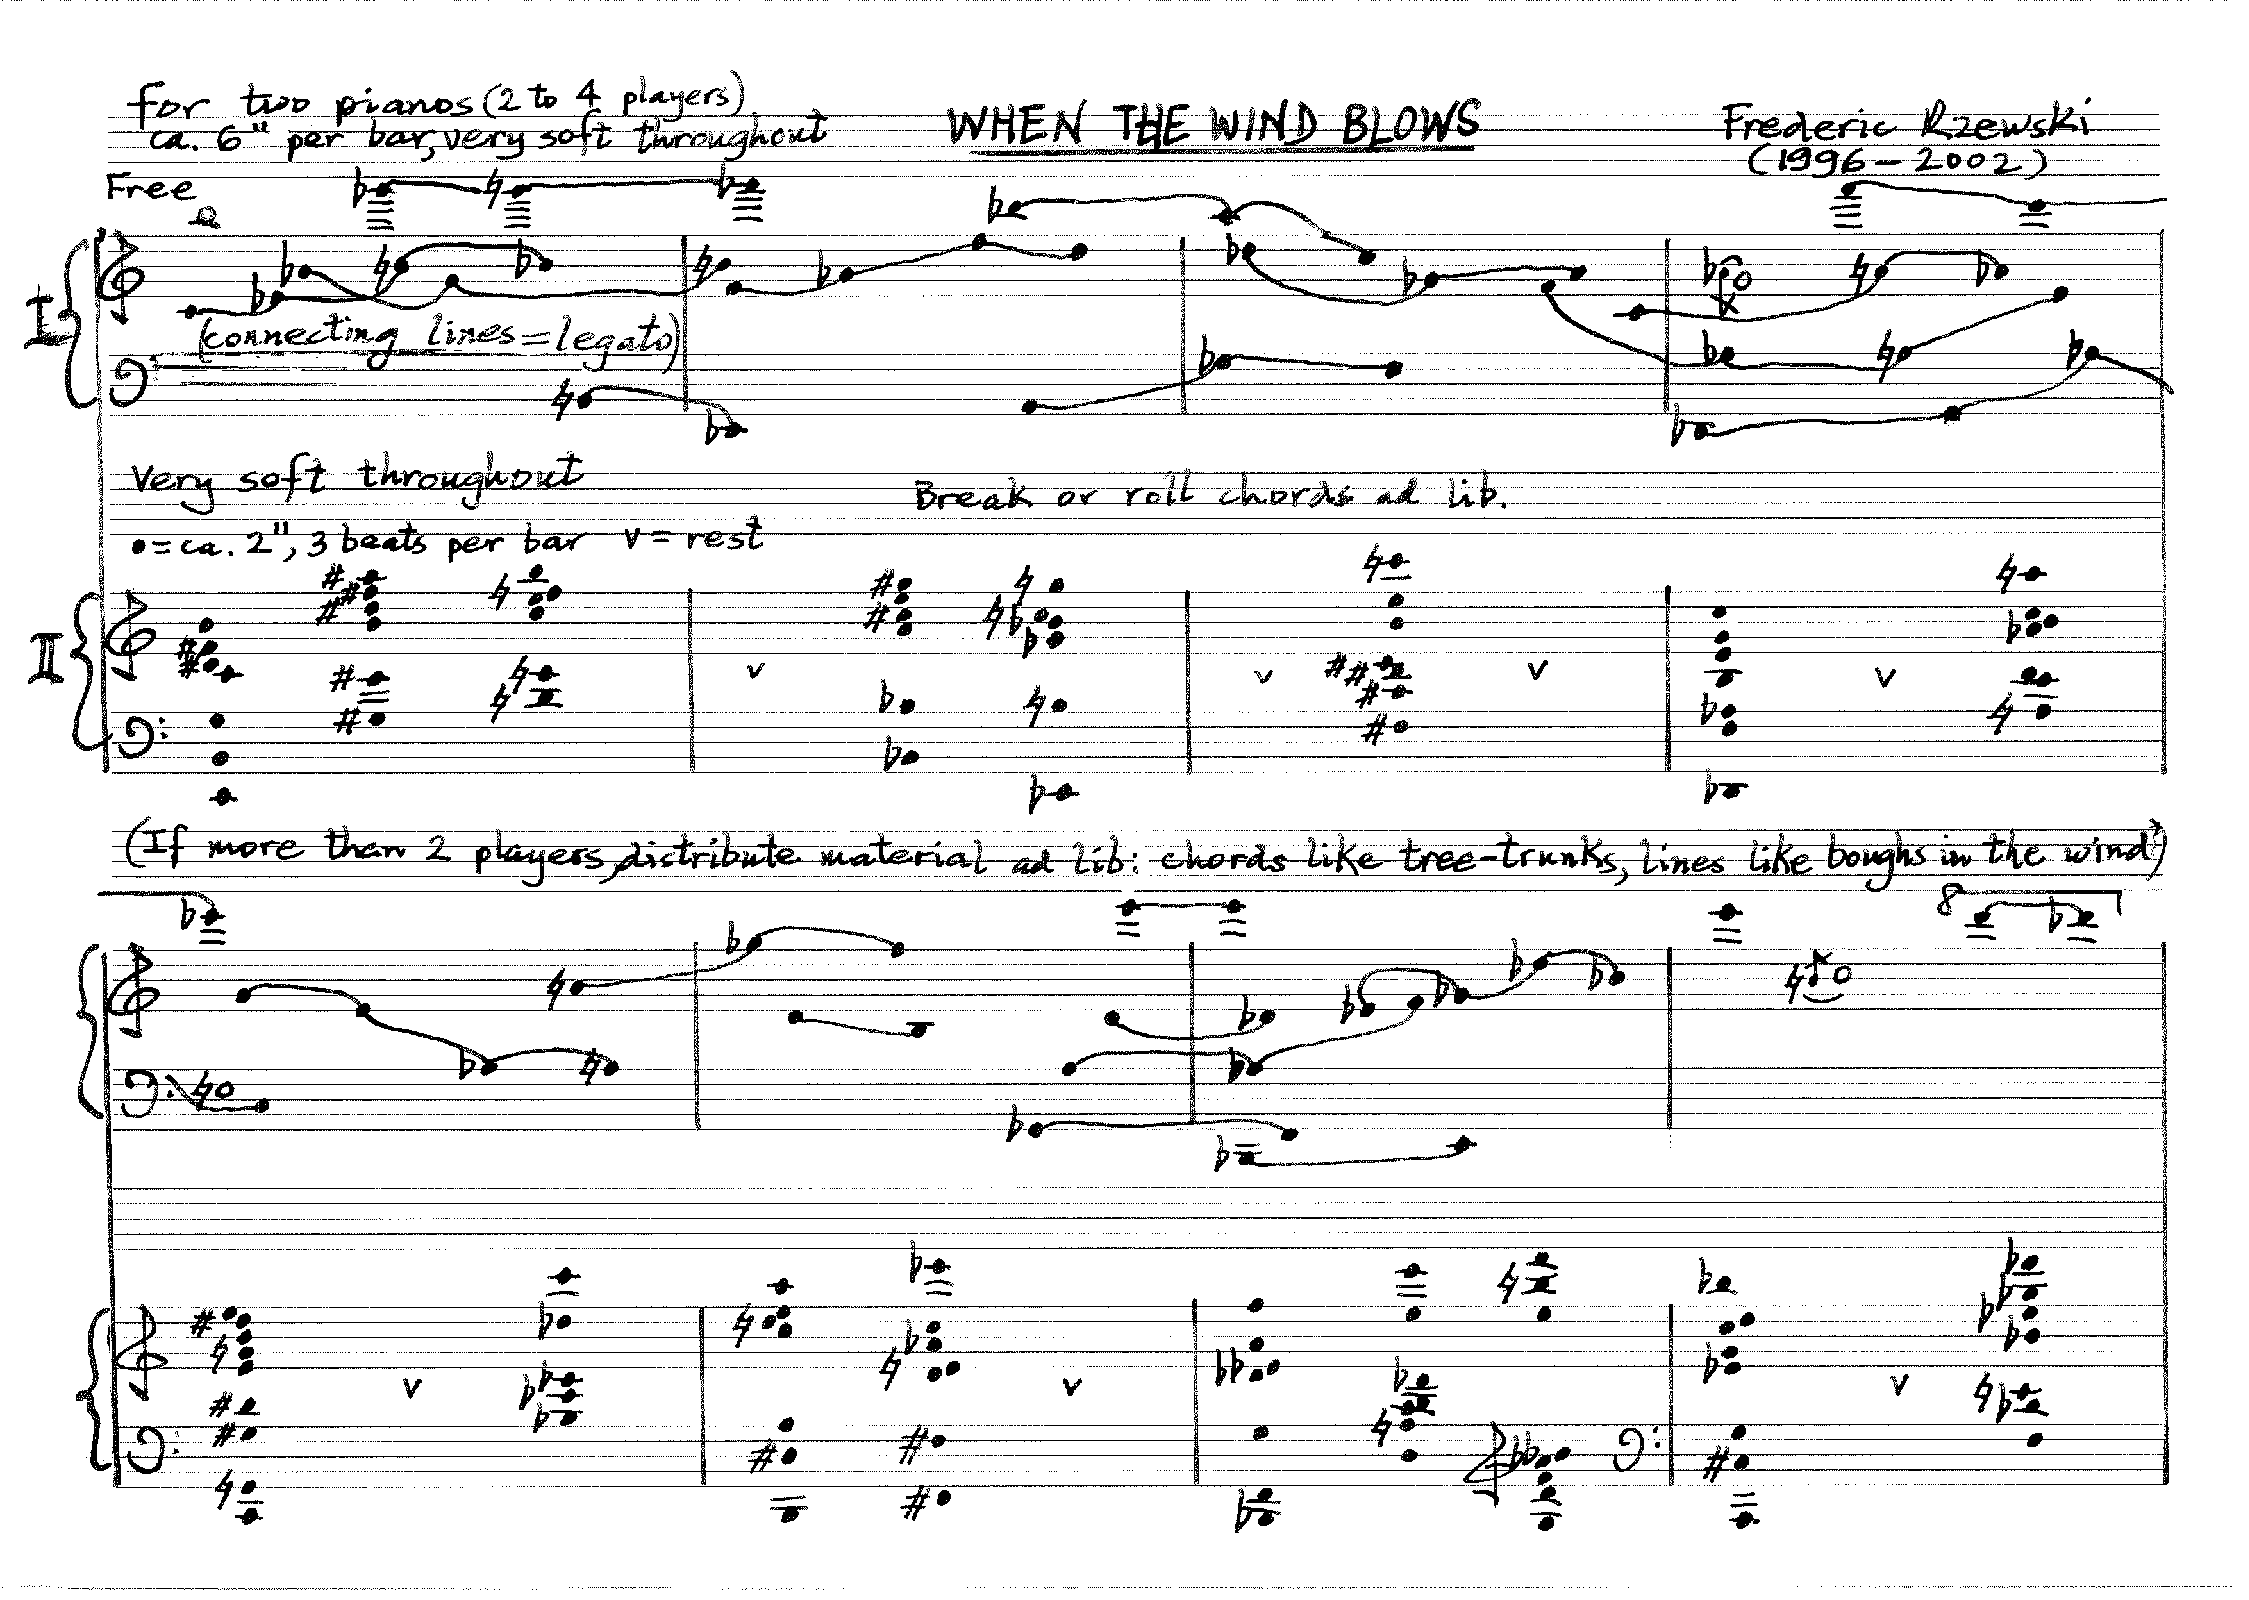 for two pianos (2 to 4 players)
ca. 6" per bar, very soft throughout
WHEN THE WIND BLOWS
Frederic Rzewski
(1996-2002)
Free
I
(connecting lines = legato)
Very soft throughout
Break or roll chords ad lib.
• = ca. 2", 3 beats per bar v = rest
II
(If more than 2 players, distribute material ad lib: chords like tree-trunks, lines like boughs in the wind)
8